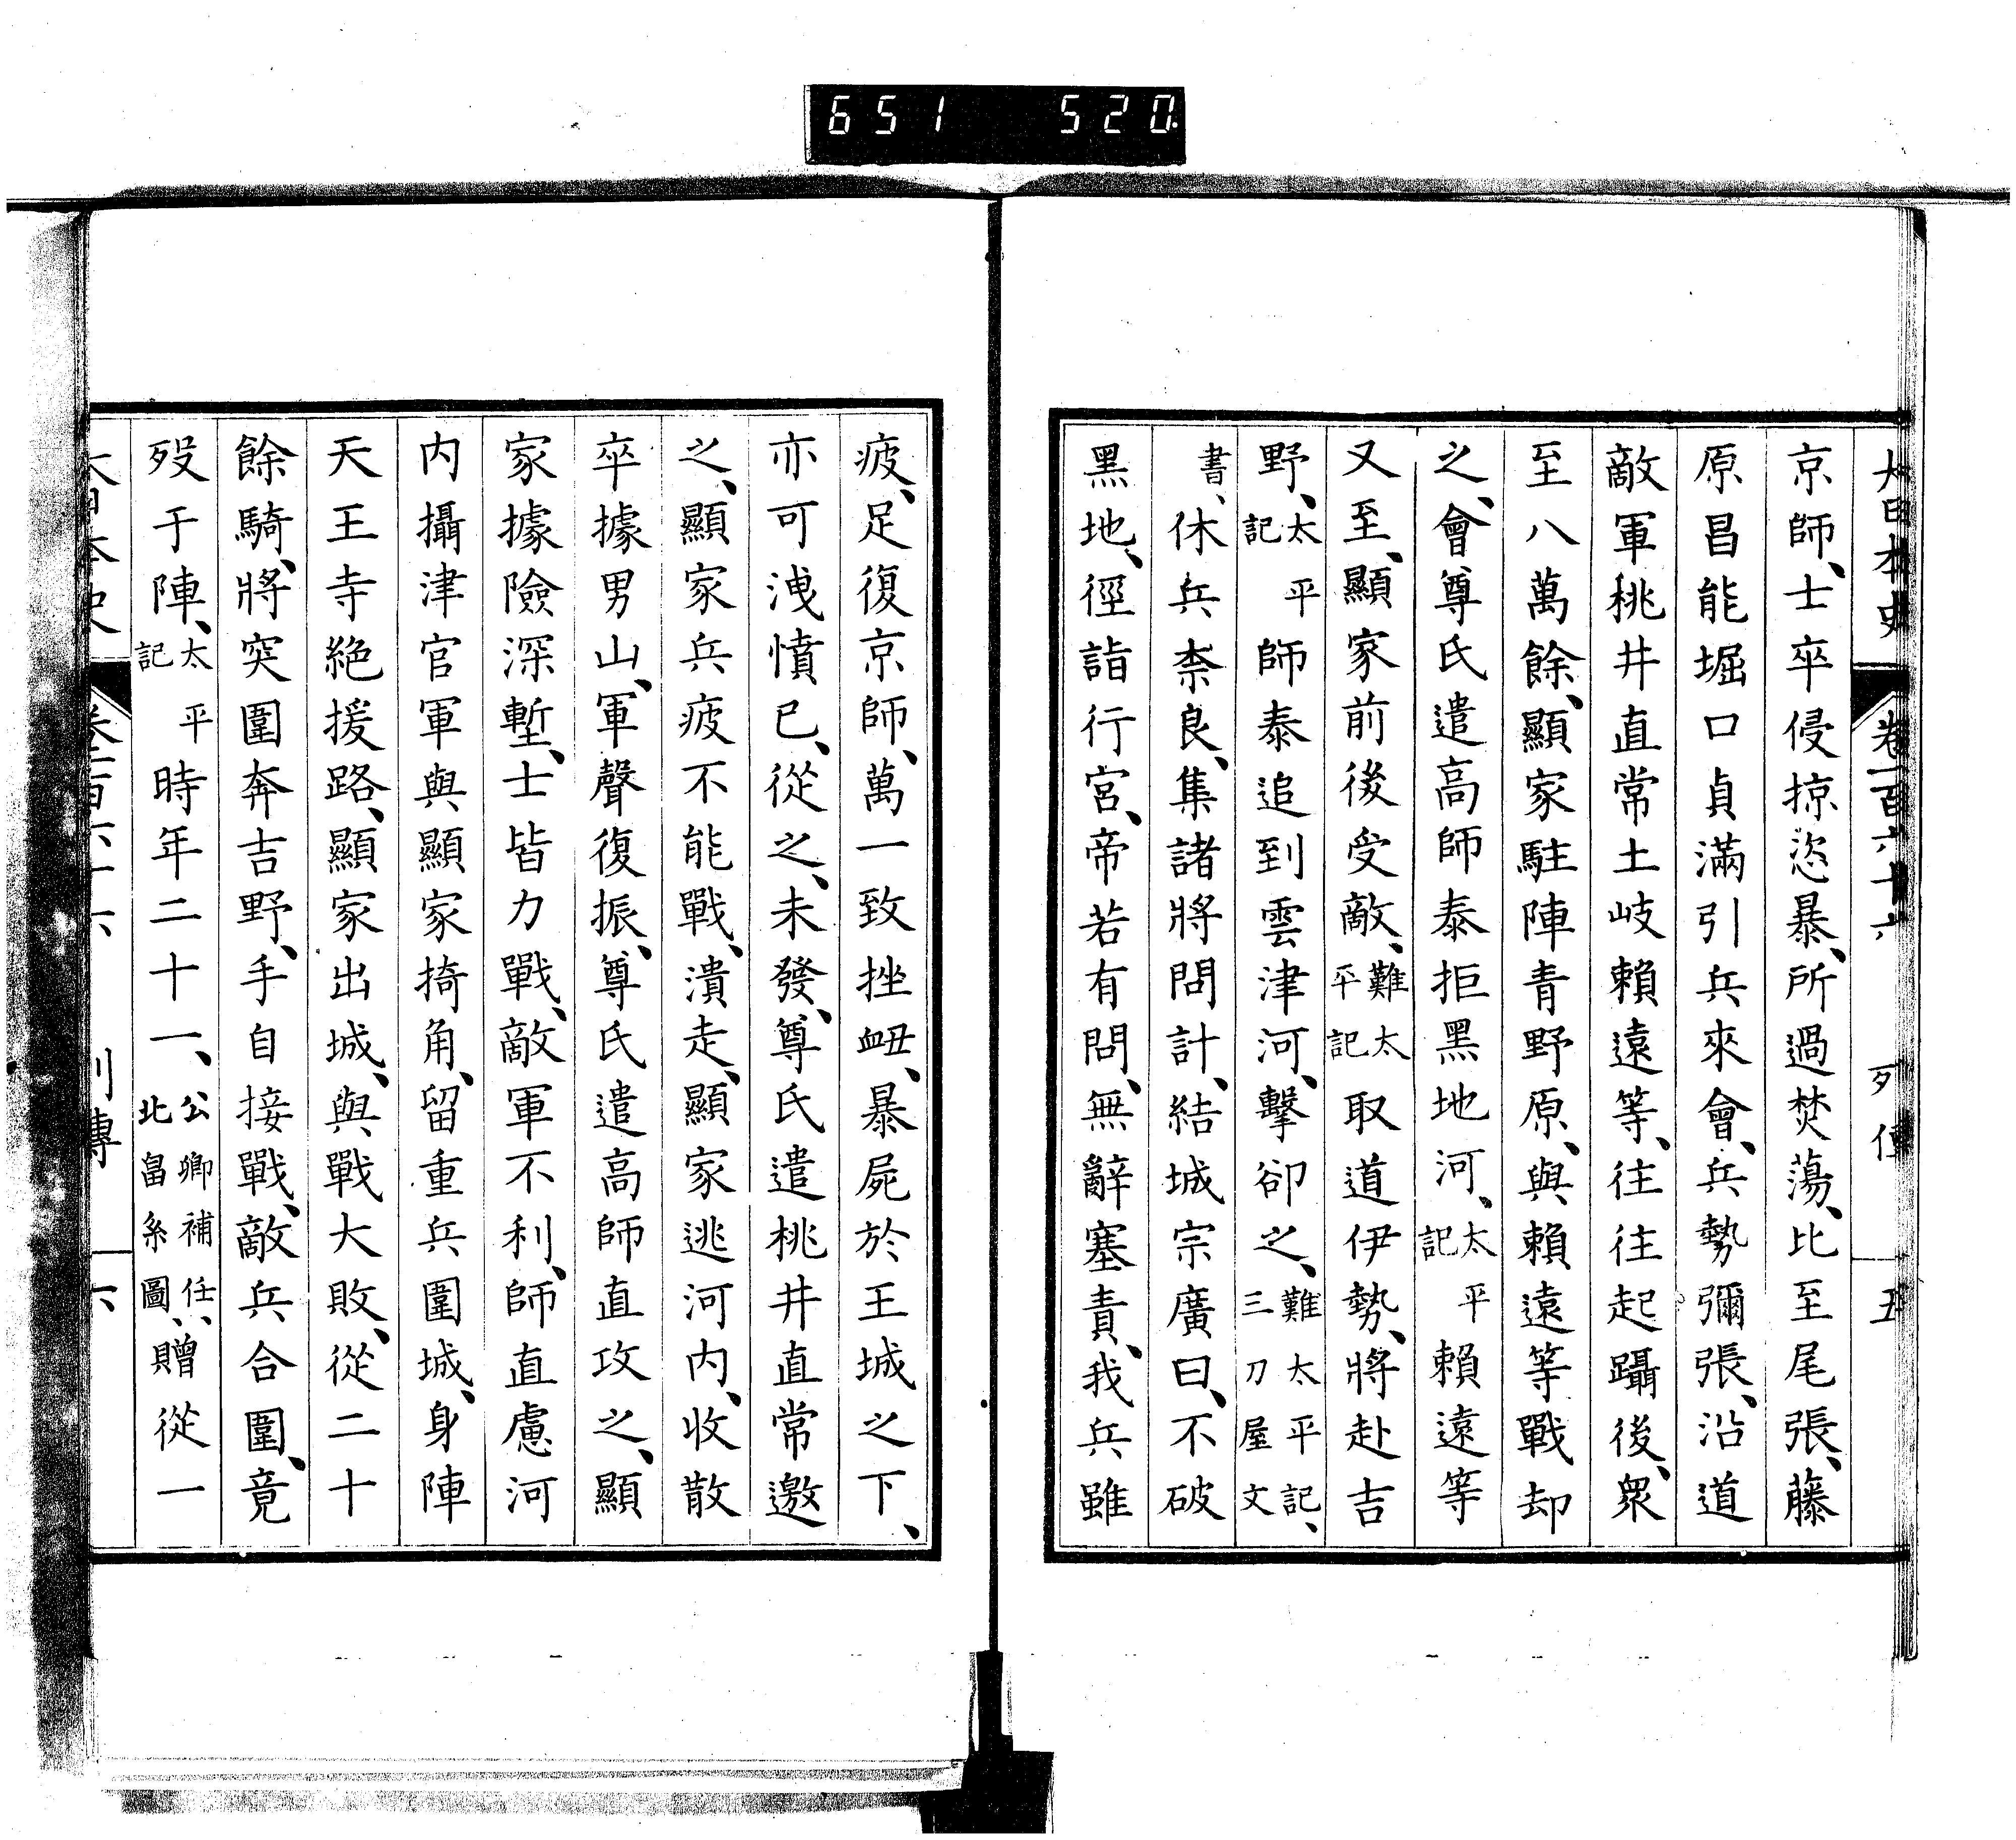 651 520
大日本史 卷一百六十六 列傳 五
京師、士卒侵掠恣暴、所過焚蕩、比至尾張、藤
原昌能堀口貞滿引兵來會、兵勢彌張、沿道
敵軍桃井直常土岐賴遠等、往往起躡後、衆
至八萬餘、顯家駐陣青野原、與賴遠等戰却
之、會尊氏遣高師泰拒黑地河、太平記賴遠等
又至、顯家前後受敵、難太平記取道伊勢、將赴吉
野、太平記師泰追到雲津河、擊卻之、難太平記、三刀屋文
書、休兵柰良、集諸將問計、結城宗廣曰、不破
黑地、徑詣行宮、帝若有問、無辭塞責、我兵雖
疲、足復京師、萬一致挫衄、暴屍於王城之下、
亦可洩憤已、從之、未發、尊氏遣桃井直常邀
之、顯家兵疲不能戰、潰走、顯家逃河內、收散
卒據男山、軍聲復振、尊氏遣高師直攻之、顯
家據險深塹、士皆力戰、敵軍不利、師直慮河
內攝津官軍與顯家掎角、留重兵圍城、身陣
天王寺絕援路、顯家出城、與戰大敗、從二十
餘騎、將突圍奔吉野、手自接戰、敵兵合圍、竟
歿于陣、太平記時年二十一、公卿補任、北畠系圖、贈從一
大日本史 卷一百六十六 列傳 六